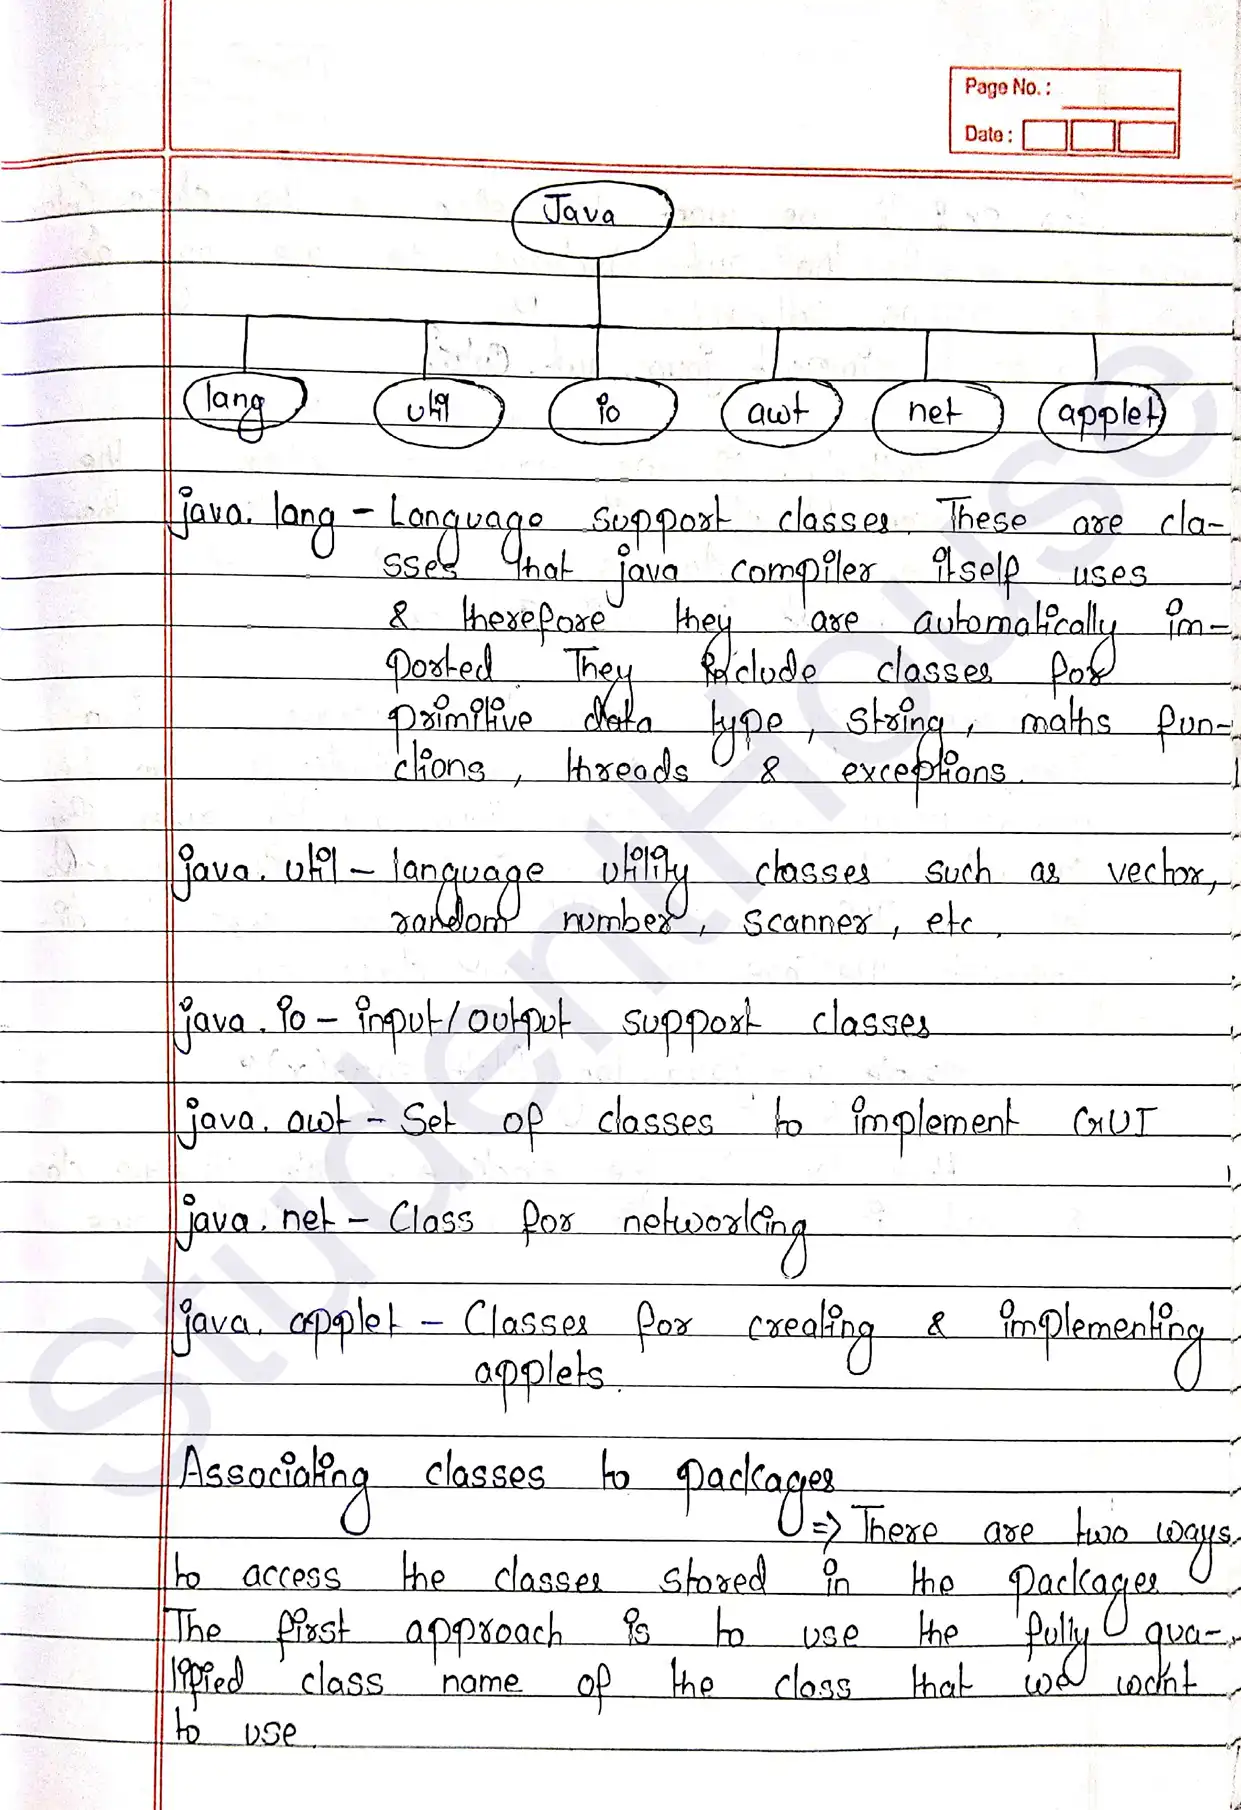 Page No. :
Date :
Java
lang util io awt net applet
java. lang - Language support classes. These are cla-
sses that java compiler itself uses
& therefore they are automatically im-
ported. They include classes for
primitive data type, string, maths fun-
ctions, threads & exceptions.
java. util - language utility classes such as vector,
random number, scanner, etc.
java. io - input/output support classes
java. awt - Set of classes to implement GUI
java. net - Class for networking
java. applet - Classes for creating & implementing
applets.
Associating classes to packages
=> There are two ways
to access the classes stored in the packages
The first approach is to use the fully qua-
lified class name of the class that we want
to use.
StudentHouse